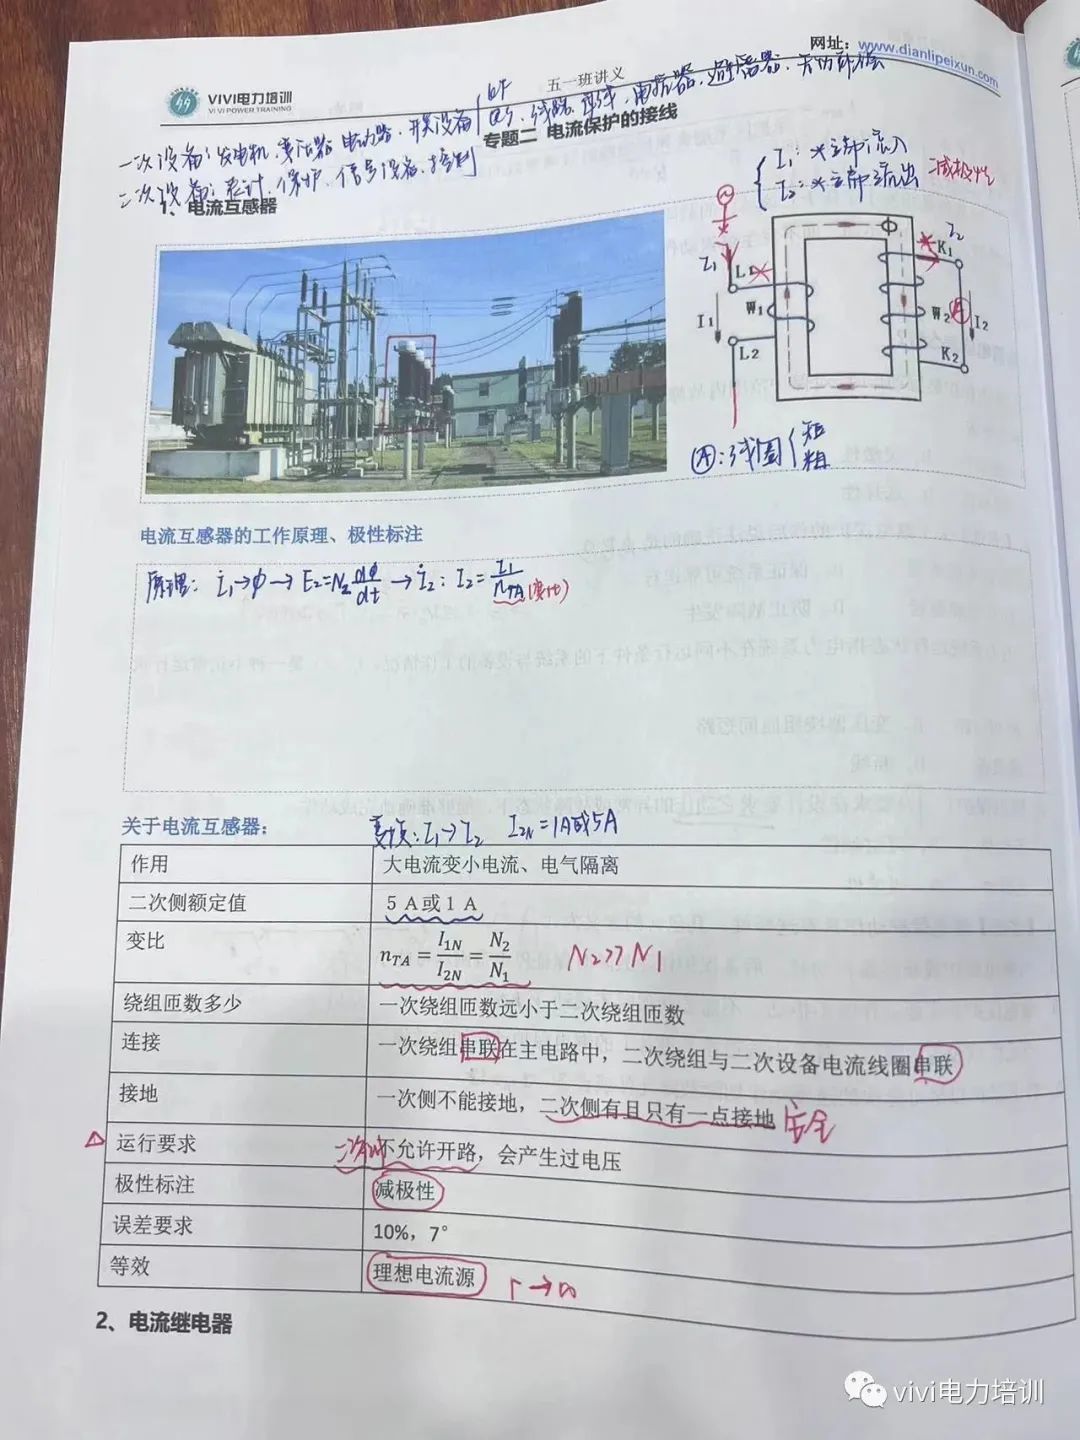 网址：www.dianlipeixun.com
五一班讲义
VIVI电力培训
VI VI POWER TRAINING
一次设备：发电机、变压器、电动路、开关设备
专题二 电流保护的接线
二次设备：表计、保护、信号设备、控制
1、电流互感器
I₁：*立端流入
I₂：*立端流出
减极性
I₁
L1
W₁
I₁
L2
I₂
K₁
W₂
A
I₂
K₂
Ⓐ：线圈{短
粗
电流互感器的工作原理、极性标注
原理：İ₁→ϕ→E₂=N₂dϕ/dt→İ₂：I₂=I₁/nTA(变比)
关于电流互感器：
变换：I₁→I₂ I2N=1A或5A
作用 大电流变小电流、电气隔离
二次侧额定值 5 A或1 A
变比 nTA=I1N/I2N=N2/N1 N2>>N1
绕组匝数多少 一次绕组匝数远小于二次绕组匝数
连接 一次绕组串联在主电路中，二次绕组与二次设备电流线圈串联
接地 一次侧不能接地，二次侧有且只有一点接地 安全
△ 运行要求 二次侧不允许开路，会产生过电压
极性标注 减极性
误差要求 10%，7°
等效 理想电流源 r→∞
2、电流继电器
vivi电力培训